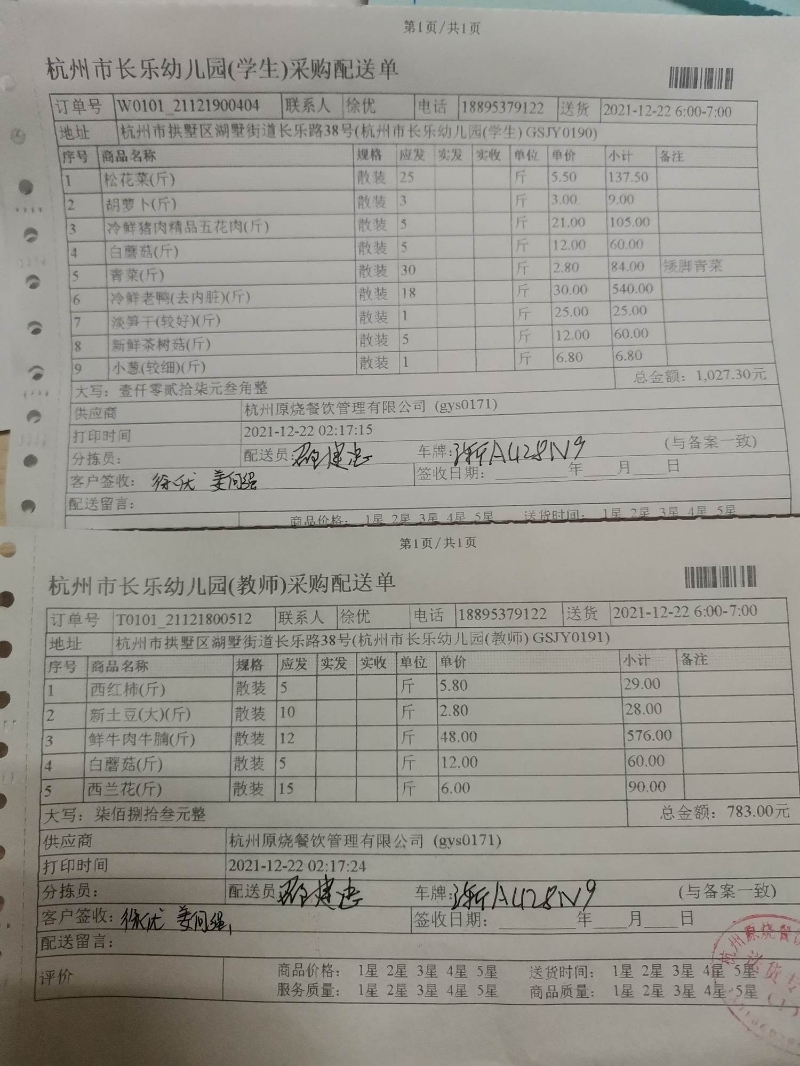 第1页/共1页
杭州市长乐幼儿园(学生)采购配送单
订单号 W0101_21121900404 联系人 徐优 电话 18895379122 送货 2021-12-22 6:00-7:00
地址 杭州市拱墅区湖墅街道长乐路38号(杭州市长乐幼儿园(学生) GSJY0190)
序号 商品名称 规格 应发 实发 实收 单位 单价 小计 备注
1 松花菜(斤) 散装 25 斤 5.50 137.50
2 胡萝卜(斤) 散装 3 斤 3.00 9.00
3 冷鲜猪肉精品五花肉(斤) 散装 5 斤 21.00 105.00
4 白蘑菇(斤) 散装 5 斤 12.00 60.00
5 青菜(斤) 散装 30 斤 2.80 84.00 矮脚青菜
6 冷鲜老鸭(去内脏)(斤) 散装 18 斤 30.00 540.00
7 淡笋干(较好)(斤) 散装 1 斤 25.00 25.00
8 新鲜茶树菇(斤) 散装 5 斤 12.00 60.00
9 小葱(较细)(斤) 散装 1 斤 6.80 6.80
大写：壹仟零贰拾柒元叁角整 总金额：1,027.30元
供应商 杭州原烧餐饮管理有限公司 (gys0171)
打印时间 2021-12-22 02:17:15
分拣员： 配送员： 车牌:浙A428N9 (与备案一致)
客户签收： 徐优 签收日期： 年 月 日
配送留言：
商品价格： 1星 2星 3星 4星 5星 送货时间： 1星 2星 3星 4星 5星
第1页/共1页
杭州市长乐幼儿园(教师)采购配送单
订单号 T0101_21121800512 联系人 徐优 电话 18895379122 送货 2021-12-22 6:00-7:00
地址 杭州市拱墅区湖墅街道长乐路38号(杭州市长乐幼儿园(教师) GSJY0191)
序号 商品名称 规格 应发 实发 实收 单位 单价 小计 备注
1 西红柿(斤) 散装 5 斤 5.80 29.00
2 新土豆(大)(斤) 散装 10 斤 2.80 28.00
3 鲜牛肉牛腩(斤) 散装 12 斤 48.00 576.00
4 白蘑菇(斤) 散装 5 斤 12.00 60.00
5 西兰花(斤) 散装 15 斤 6.00 90.00
大写：柒佰捌拾叁元整 总金额：783.00元
供应商 杭州原烧餐饮管理有限公司 (gys0171)
打印时间 2021-12-22 02:17:24
分拣员： 配送员 车牌:浙A428N9 (与备案一致)
客户签收：徐优 签收日期： 年 月 日
配送留言：
评价 商品价格： 1星 2星 3星 4星 5星 送货时间： 1星 2星 3星 4星 5星
服务质量： 1星 2星 3星 4星 5星 商品质量： 1星 2星 3星 4星 5星
杭州原烧餐
送货专
(1)